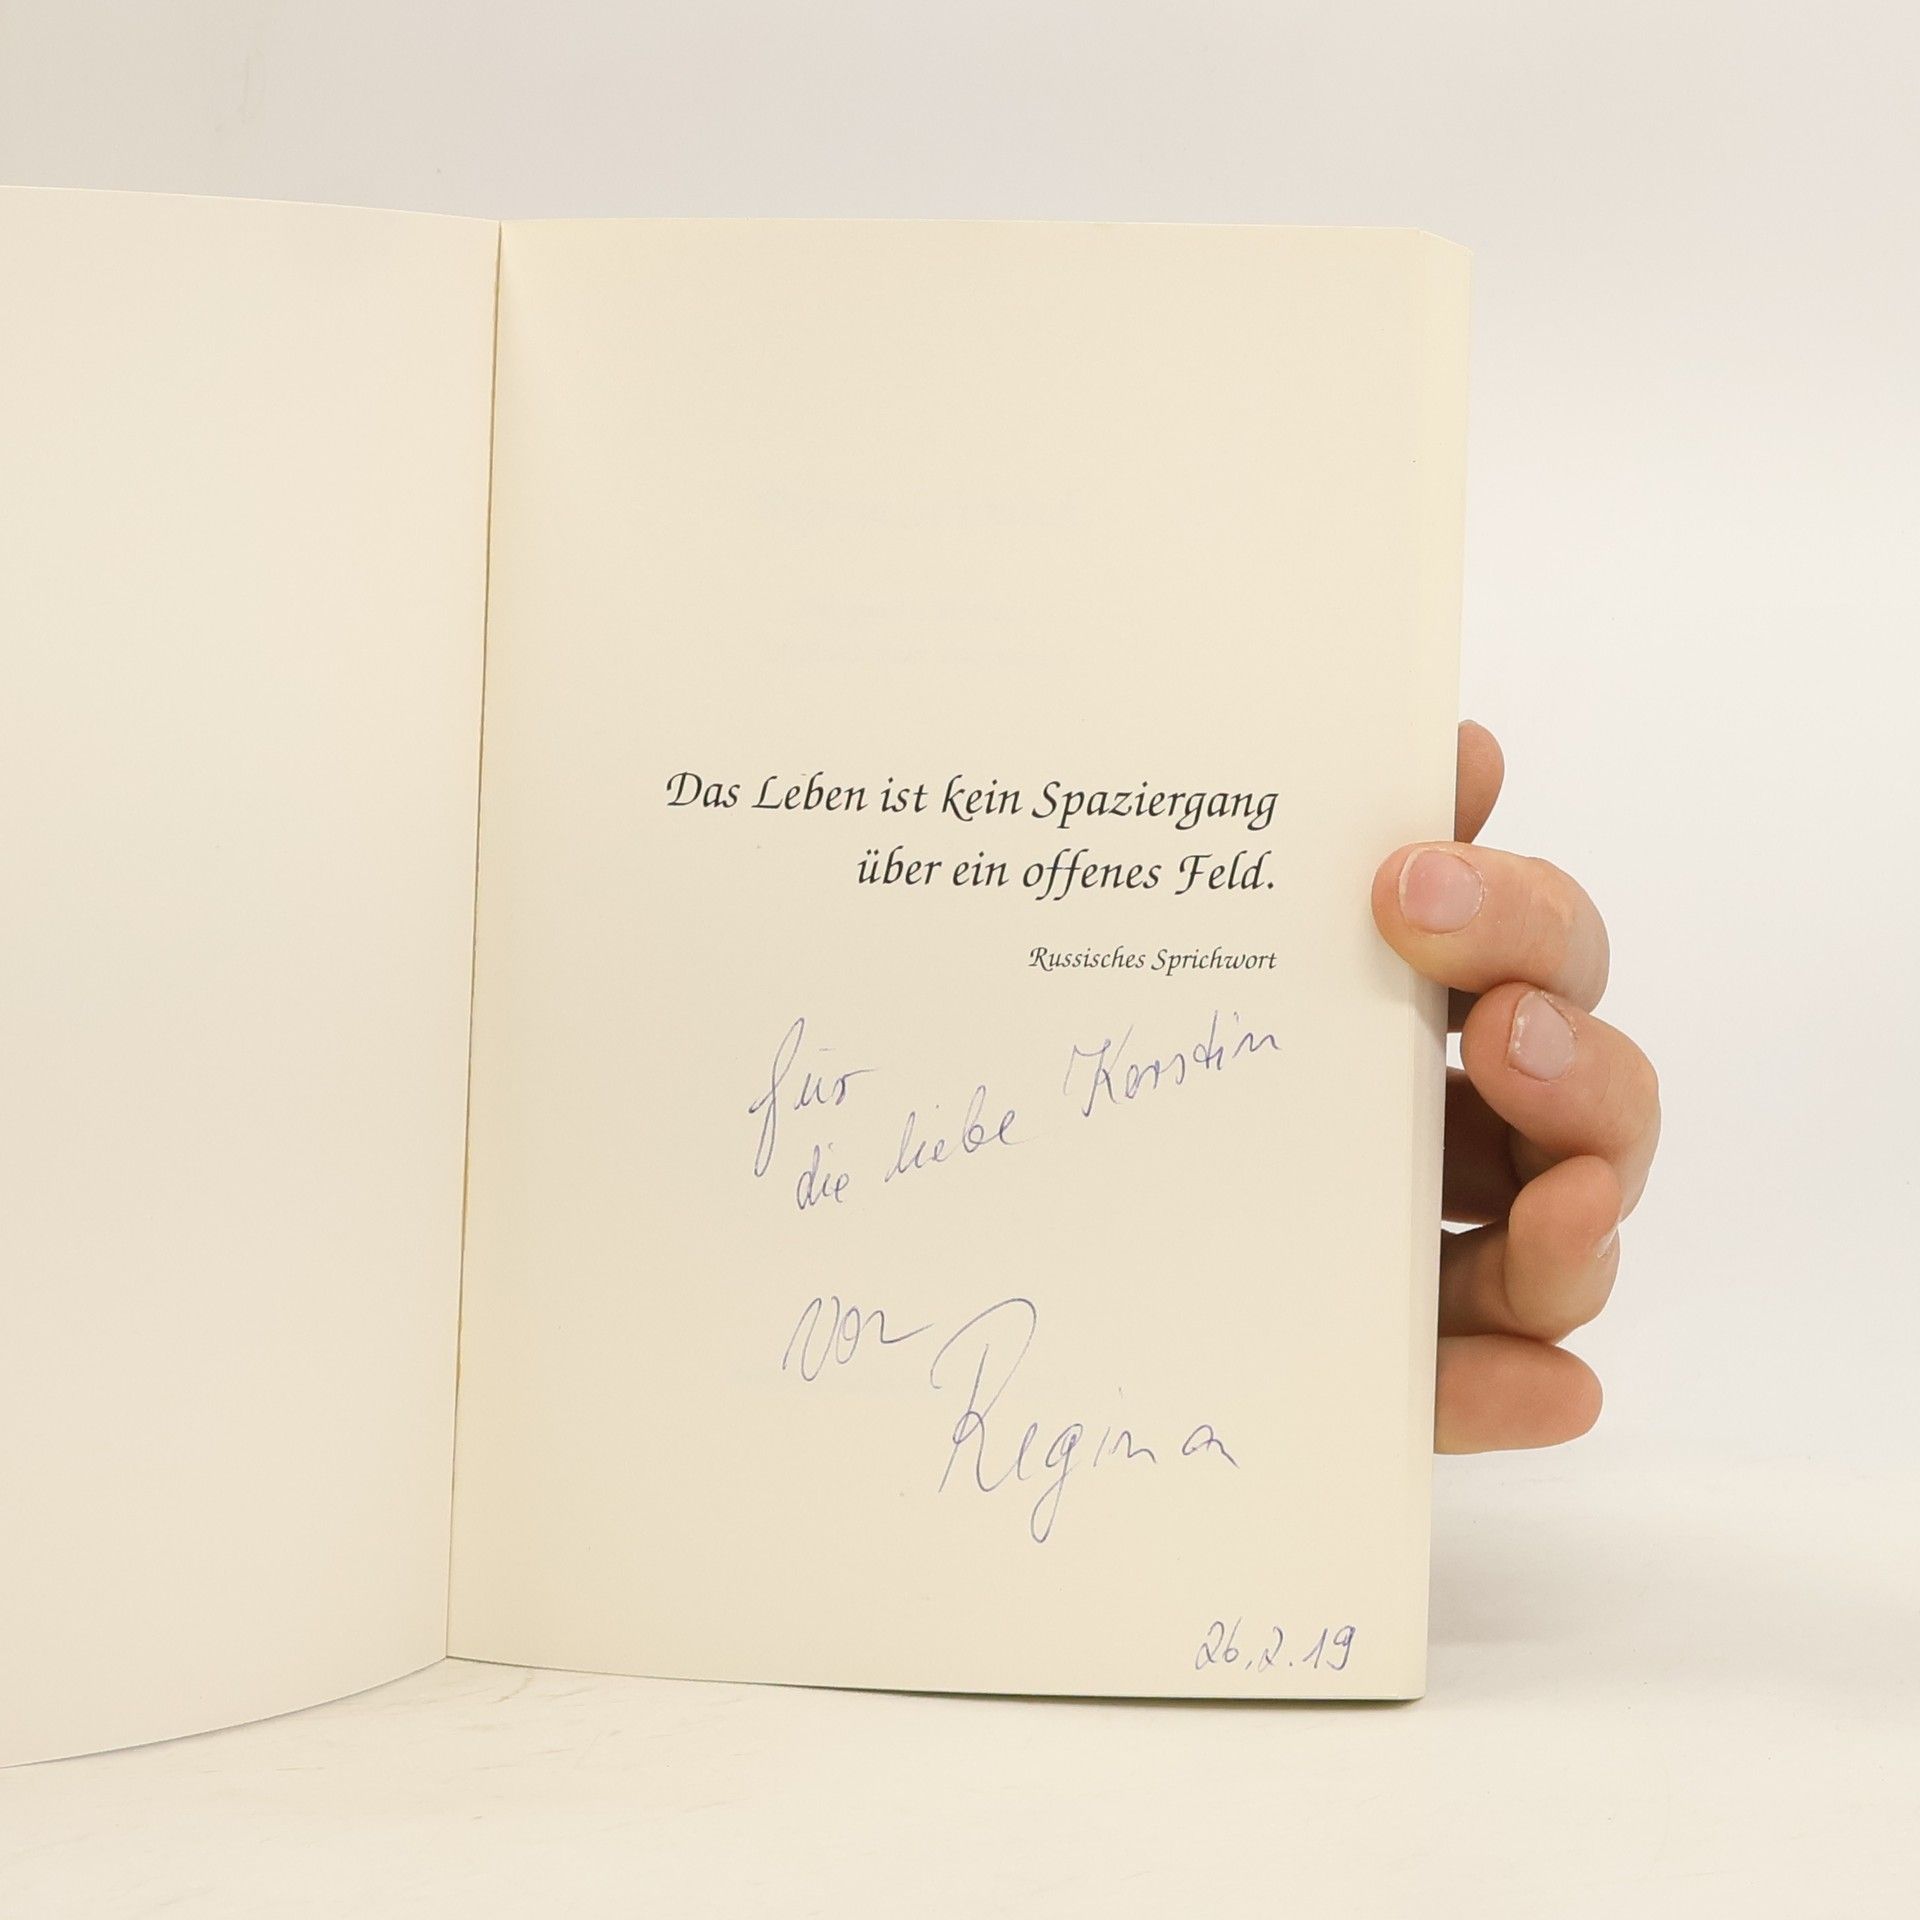 Das Leben ist kein Spaziergang
über ein offenes Feld.
Russisches Sprichwort
für
die liebe Kerstin
von
Regina
26.2.19